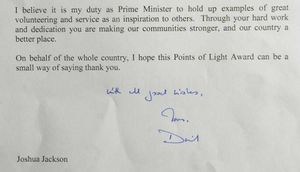 I believe it is my duty as Prime Minister to hold up examples of great
volunteering and service as an inspiration to others. Through your hard work
and dedication you are making our communities stronger, and our country a
better place.
On behalf of the whole country, I hope this Points of Light Award can be a
small way of saying thank you.
with all good wishes,
Yours,
David
Joshua Jackson